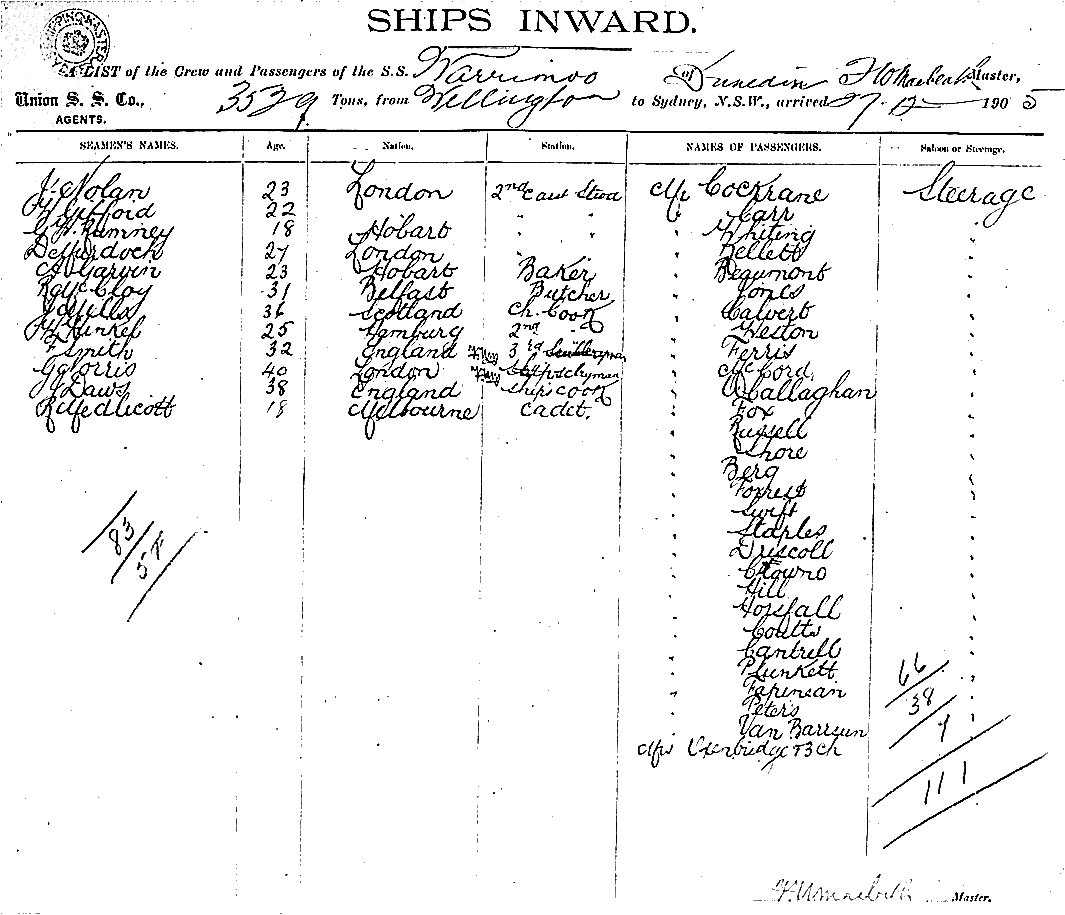 SHIPS INWARD.
A LIST of the Crew and Passengers of the S.S. Warrimoo of Dunedin Master,
Union S. S. Co., 3529 Tons, from Wellington to Sydney, N.S.W., arrived 27. 12 1905
AGENTS.
SEAMEN'S NAMES. Age. Nation. Station. NAMES OF PASSENGERS. Saloon or Steerage.
J. Nolan 23 London 2nd Mr Cochrane Steerage
Gifford 22 " " " Carr "
Rumney 18 Hobart " " " Whiting "
27 London " Bellett "
Garvin 23 Hobart Baker " Beaumont "
31 Belfast Butcher " Jones "
36 Scotland Ch. Cook " Calvert "
25 Hamburg 2nd " " Weston "
F Smith 32 England 3rd " Ferris "
40 London " McCord "
J Daws 38 England Ships Cook " O'Callaghan "
R Medlicott 18 Melbourne Cadet. " Fox "
" Russell "
" Shore "
" Berg "
" Forrest "
" Swift "
" Staples "
" Driscoll "
" "
" Hill "
" Horsfall "
" Coutts "
" Cantrell "
" Plunkett "
" "
" Peters "
" Van "
83
66
38
7
111
Master.